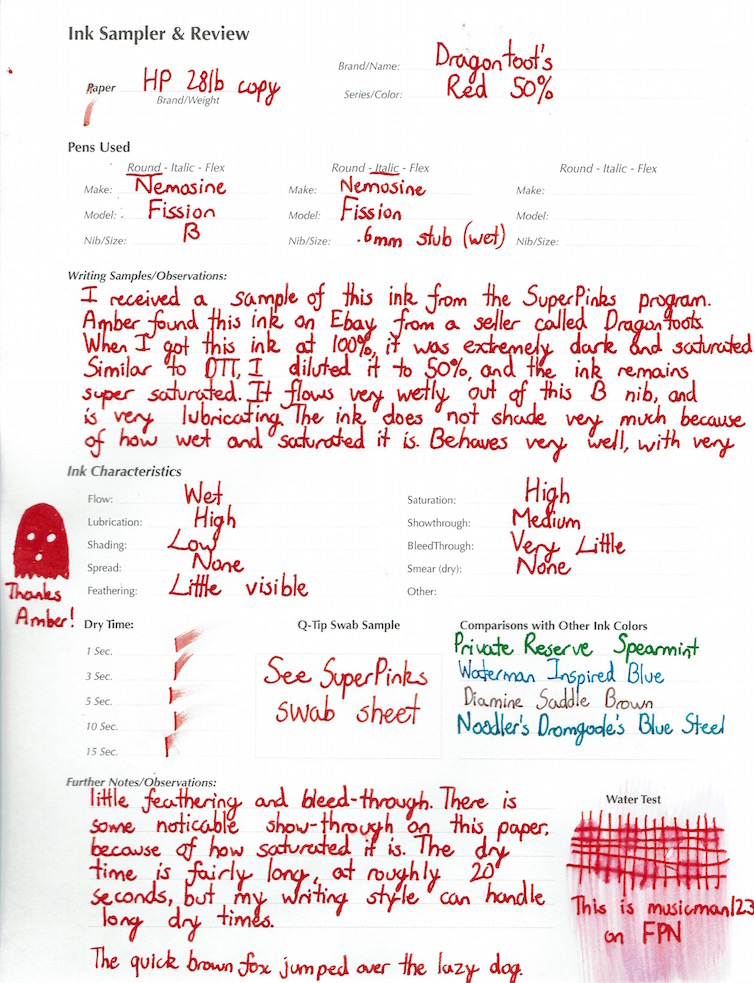 Ink Sampler & Review
Brand/Name: Dragontoot's
Paper HP 28lb copy
Brand/Weight
Series/Color: Red 50%
Pens Used
Round - Italic - Flex Round - Italic - Flex Round - Italic - Flex
Make: Nemosine Make: Nemosine Make:
Model: Fission Model: Fission Model:
Nib/Size: B Nib/Size: .6mm stub (wet) Nib/Size:
Writing Samples/Observations:
I received a sample of this ink from the SuperPinks program.
Amber found this ink on Ebay from a seller called Dragontoots.
When I got this ink at 100%, it was extremely dark and saturated
Similar to DTT, I diluted it to 50%, and the ink remains
super saturated. It flows very wetly out of this B nib, and
is very lubricating. The ink does not shade very much because
of how wet and saturated it is. Behaves very well, with very
Ink Characteristics
Flow: Wet Saturation: High
Lubrication: High Showthrough: Medium
Shading: Low BleedThrough: Very Little
Spread: None Smear (dry): None
Feathering: Little visible Other:
Thanks
Amber!
Dry Time:
1 Sec.
3 Sec.
5 Sec.
10 Sec.
15 Sec.
Q-Tip Swab Sample
See SuperPinks
swab sheet
Comparisons with Other Ink Colors
Private Reserve Spearmint
Waterman Inspired Blue
Diamine Saddle Brown
Noodler's Dromgoole's Blue Steel
Further Notes/Observations:
little feathering and bleed-through. There is
some noticable show-through on this paper,
because of how saturated it is. The dry
time is fairly long, at roughly 20
seconds, but my writing style can handle
long dry times.
The quick brown fox jumped over the lazy dog.
Water Test
This is musicman123
on FPN